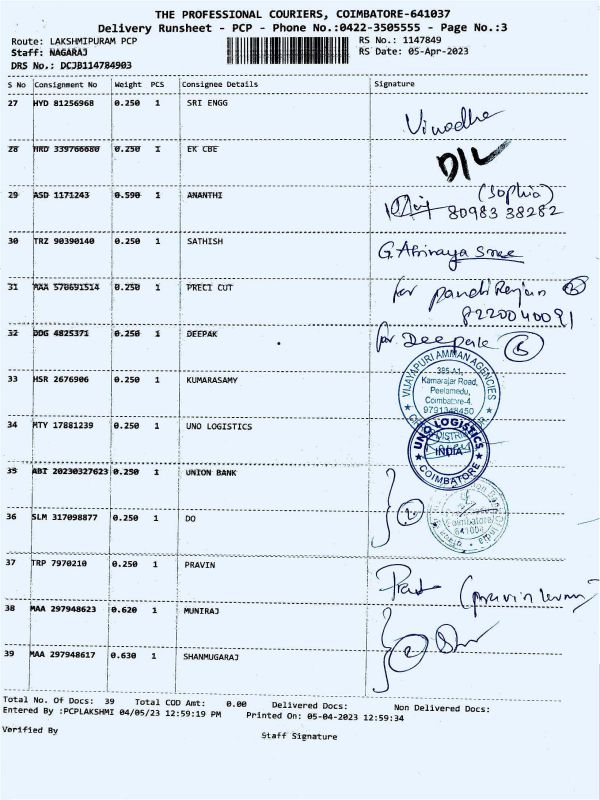 THE PROFESSIONAL COURIERS, COIMBATORE-641037
Delivery Runsheet - PCP - Phone No.:0422-3505555 - Page No.:3
Route: LAKSHMIPURAM PCP
RS No.: 1147849
Staff: NAGARAJ
RS Date: 05-Apr-2023
DRS No.: DCJB114784903
S No Consignment No Weight PCS Consignee Details Signature
27 HYD 81256968 0.250 1 SRI ENGG Vinodha
28 HRD 339766680 0.250 1 EK CBE D/L
29 ASD 1171243 0.590 1 ANANTHI (Sophia)
80983 38282
30 TRZ 90390140 0.250 1 SATHISH G. Abinaya Sree
31 MAA 570691514 0.250 1 PRECI CUT for
8220040091
32 DDG 4825371 0.250 1 DEEPAK for Deepak
33 HSR 2676906 0.250 1 KUMARASAMY
VIJAYAPURI AMMAN AGENCIES
385-A1,
Kamarajar Road,
Peelamedu,
Coimbatore-4.
9791348450
34 MTY 17881239 0.250 1 UNO LOGISTICS
UNO LOGISTICS
INDIA
COIMBATORE
35 ABI 20230327623 0.250 1 UNION BANK
36 SLM 317098877 0.250 1 DO 2
Coimbatore
641004
37 TRP 7970210 0.250 1 PRAVIN
38 MAA 297948623 0.620 1 MUNIRAJ
39 MAA 297948617 0.630 1 SHANMUGARAJ 2
Total No. Of Docs: 39 Total COD Amt: 0.00 Delivered Docs: Non Delivered Docs:
Entered By :PCPLAKSHMI 04/05/23 12:59:19 PM Printed On: 05-04-2023 12:59:34
Verified By
Staff Signature